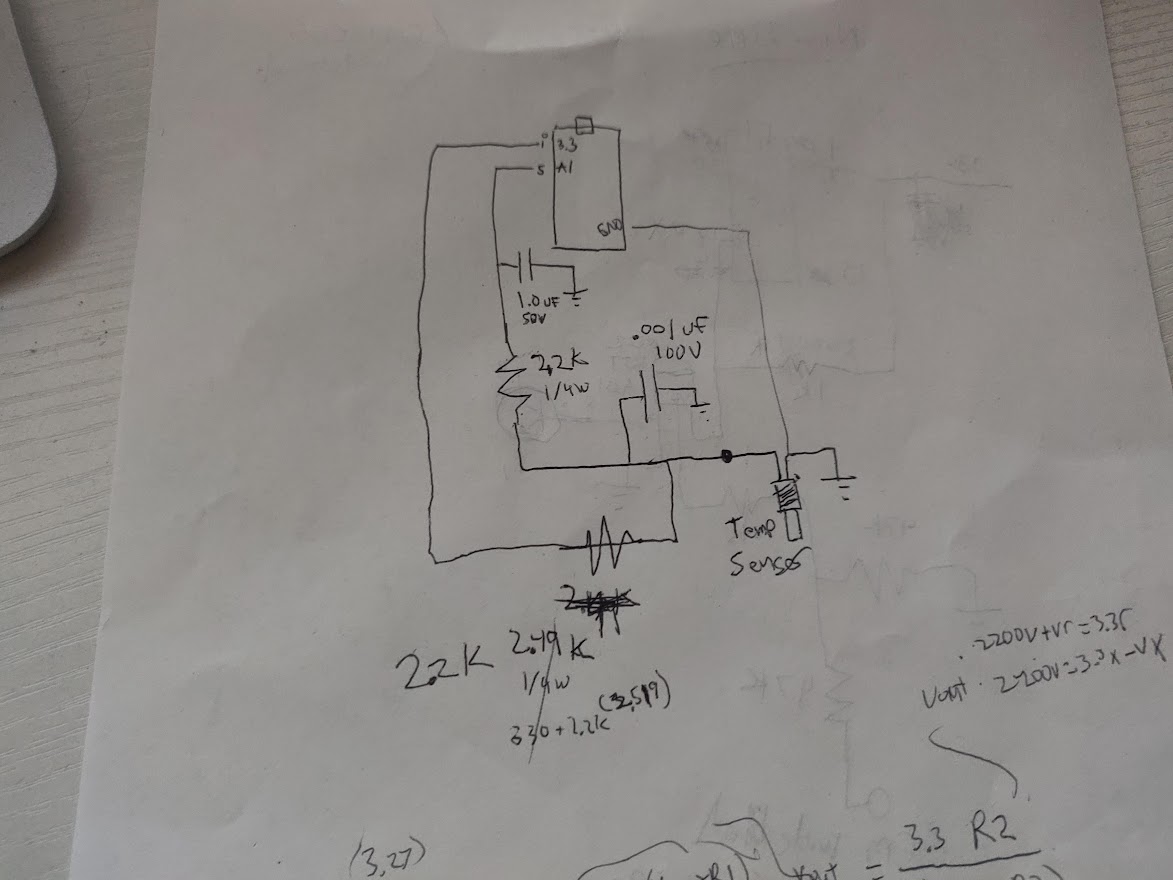 i 3.3
s A1
GND
1.0uF
50V
.001uF
100V
2.2K
1/4w
Temp
Sensor
2.2K
2.49 K
1/4w
(2.519)
330+2.2K
.2200V+Vr=3.3r
Vout. 2200V=3.3x-VX
(3.27)
Vout = 3.3 R2